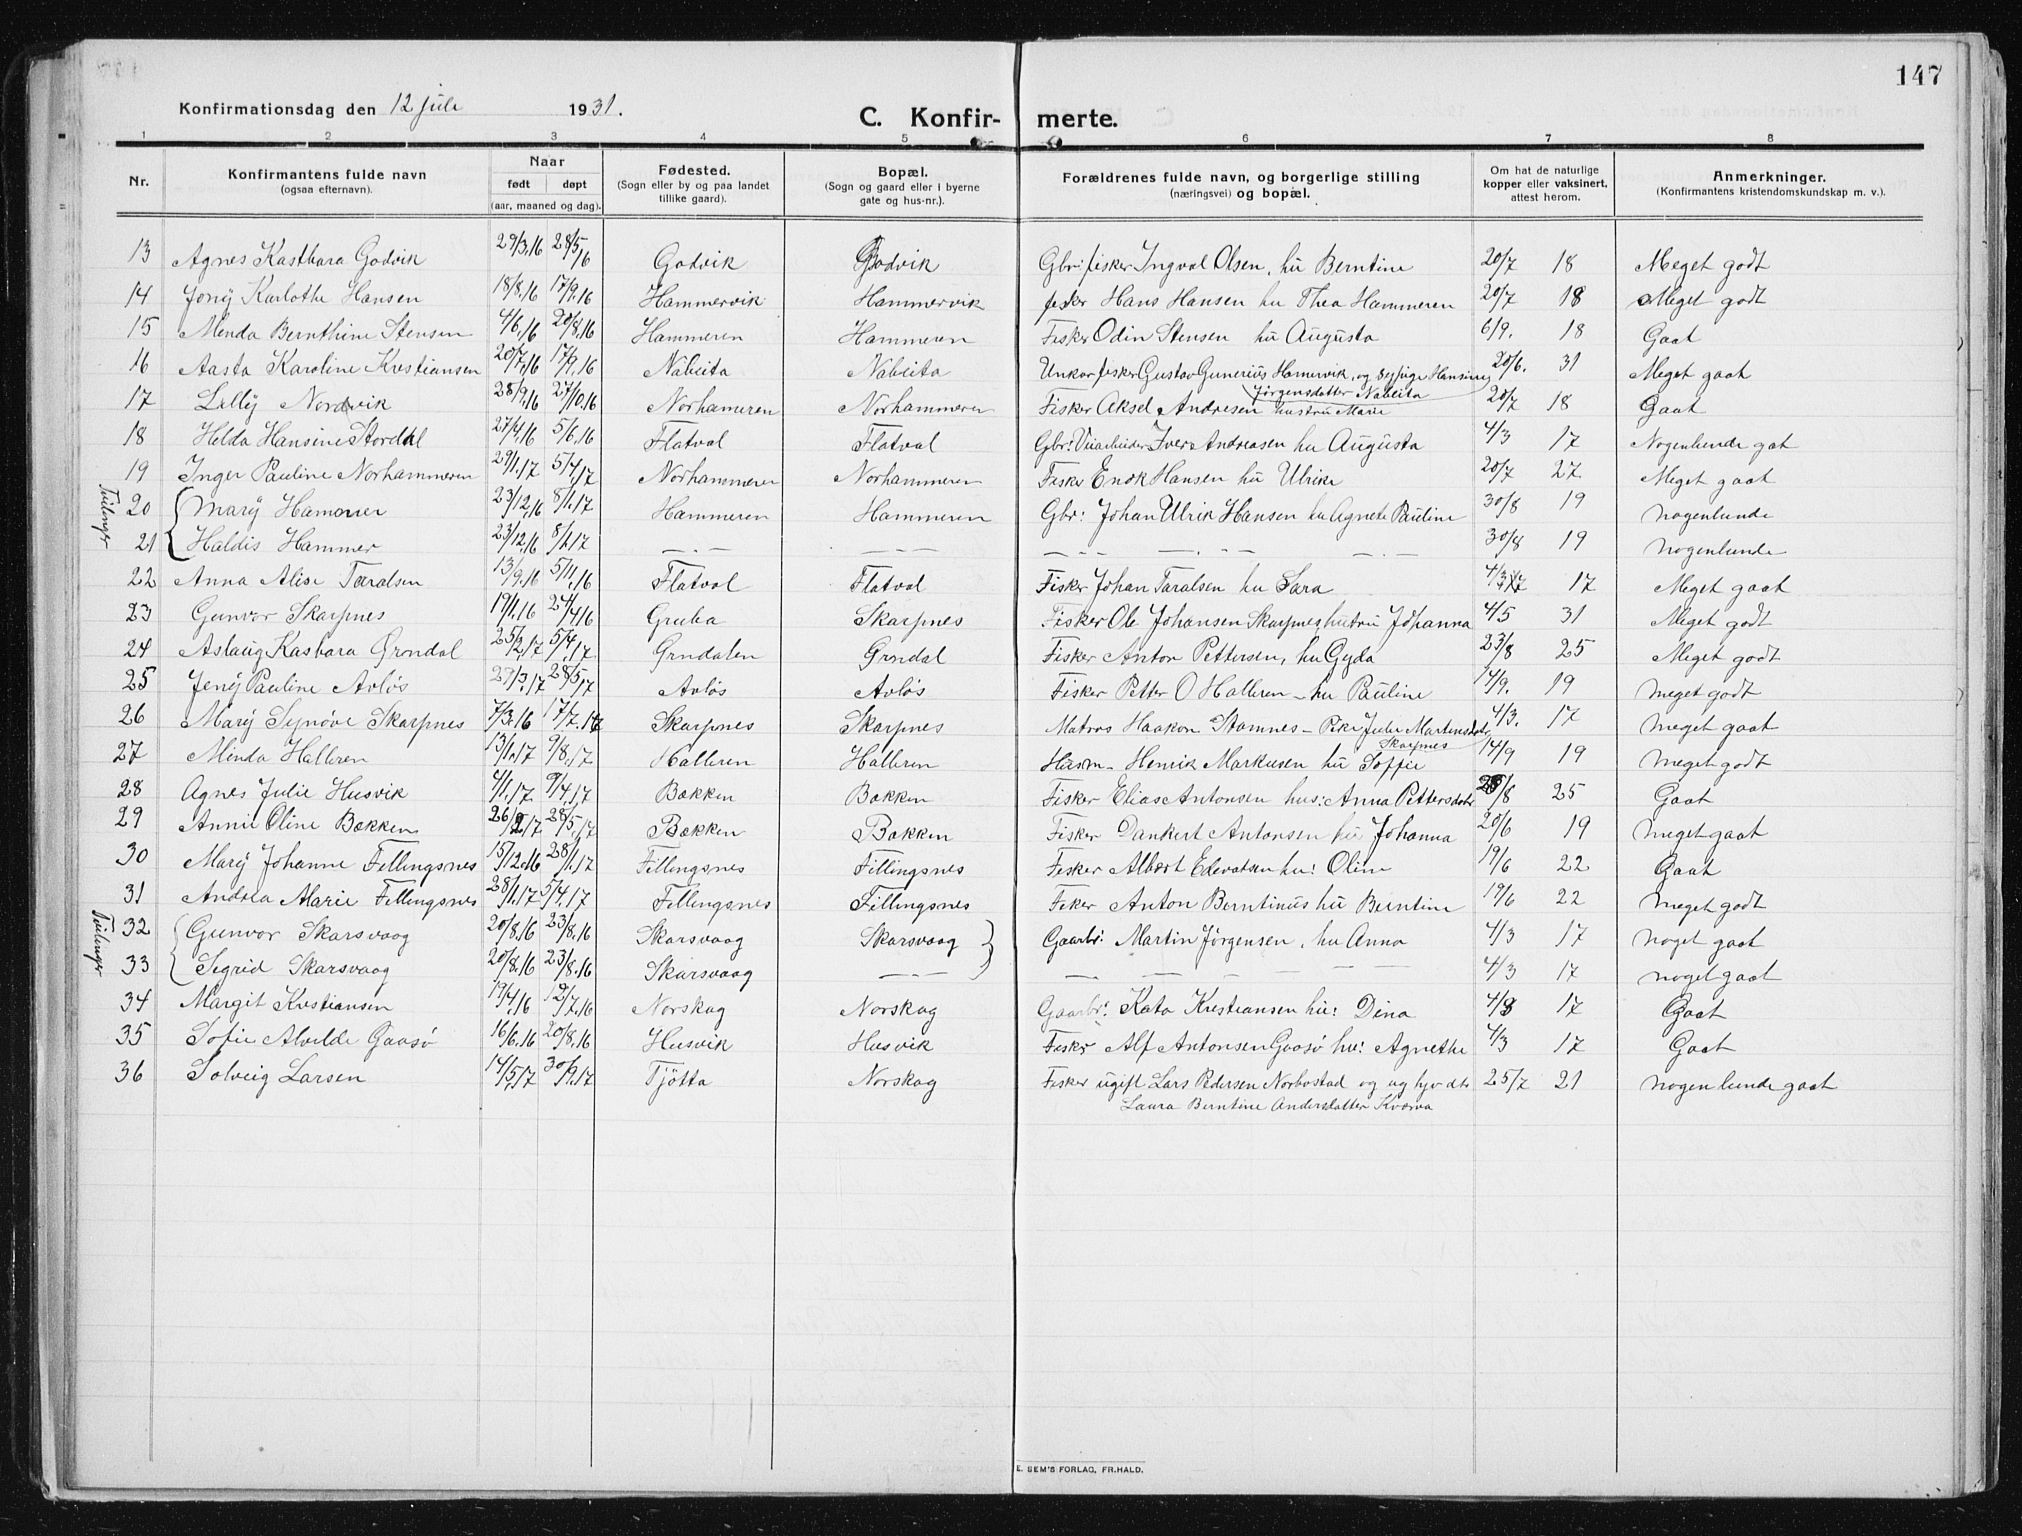 147
Konfirmationsdag den 12 juli 1931.
C. Konfir- merte.
1 2 3 4 5 6 7 8
Nr. Konfirmantens fulde navn (ogsaa efternavn). Naar født døpt (aar, maaned og dag). Fødested. (Sogn eller by og paa landet tillike gaard). Bopæl. (Sogn og gaard eller i byerne gate og hus-nr.). Forældrenes fulde navn, og borgerlige stilling (næringsvei) og bopæl. Om hat de naturlige kopper eller vaksinert, attest herom. Anmerkninger. (Konfirmantens kristendomskundskap m. v.).
13 Agnes Kastbara Godvik 29/3.16 28/5 16 Godvik Godvik Gbr: fisker Ingval Olsen, hu Berntine 20/7 18 Meget godt
14 Jony Karlothe Hansen 18/8.16 17/9.16 Hammervik Hammervik fisker Hans Hansen hu Thea Hammeren 20/7 18 Meget godt
15 Menda Bernthine Stensen 4/6.16 20/8.16 Hammeren Hammeren Fisker Odin Stensen hu Augusta 6/9. 18 Gaat
16 Aasta Karoline Kristiansen 20/7.16 17/9.16 Nabeita Nabeita Unkar fisker Gustav Gunerius Hamervik, og pige Hansine 20/6. 31 Meget gaat
Jörgensdatter Nabeita
17 Lilly Nordvik 28/9.16 27/10.16 Norhameren Norhammeren Fisker Aksel Andresen hustru Marie 20/7 18 Gaat
18 Helda Hansine Stordal 27/4.16 5/6.16 Flatval Flatval Gbr: Iver Andreasen hu Augusta 4/3 17 Nogenlunde gat
19 Inger Pauline Norhammeren 29/1.17 5/4.17 Norhammeren Norhammeren Fisker Enok Hansen hu Ulrike 20/7 27 Meget gaat
Tvilinger
20 Mary Hammer 23/12.16 8/1.17 Hammeren Hammeren Gbr: Johan Ulrik Hansen hu Agnete Pauline 30/8 19 nogenlunde
21 Haldis Hammer 23/12.16 8/1.17 — — — — 30/8 19 nogenlunde
22 Anna Alise Taralsen 13/9.16 5/11.16 Flatval Flatval Fisker Johan Taralsen hu Sara 4/3 17 Meget gaat
23 Gunvor Skarpnes 19/1.16 24/4 16 Gruba Skarpnes Fisker Ole Johansen Skarpnes hustru Johanna 4/5 31 Meget godt
24 Aslaug Kasbara Grndal 25/2.17 5/4.17 Grndalen Grndal Fisker Anton Pettersen, hu Gyda 23/8 25 Meget godt
25 Jeny Pauline Avløs 27/3.17 28/5.17 Avløs Avløs Fisker Petter O Halleren – hu Pauline 14/9. 19 meget godt
26 Mary Synøve Skarpnes 7/3.16 17/7.16 Skarpnes Skarpnes Matros Haakon Stamnes – Pike Julie Martinsdatr 4/3. 17 meget gaat
Skarpnes
27 Menda Halleren 13/1.17 9/8.17 Halleren Halleren Husm – Henrik Markusen hu Soffie 14/9 19 meget godt
28 Agnes Julie Husvik 4/1.17 9/4.17 Bakken Bakken Fisker Elias Antonsen hus: Anna Pettersdatr /8 25 Gaat
29 Annie Oline Bakken 26/2.17 28/5.17 Bakken Bakken Fisker Dankert Antonsen hu Johanna 20/6 19 meget gaat
30 Mary Johanne Fillingsnes 15/12.16 28/1.17 Fillingsnes Fillingsnes Fisker Albert Edevatsen hu: Oline 19/6 22 Gaat
31 Andrea Marie Fillingsnes 28/1.17 5/4.17 Fillingsnes Fillingsnes Fisker Anton Berntinus hu Berntine 19/6 22 meget godt
Tvilinger
32 Gunvor Skarsvaag 20/8.16 23/8.16 Skarsvaag Skarsvaag Gaarbr: Martin Jörgensen, hu Anna 4/3 17 noget gaat
33 Segrid Skarsvaag 20/8.16 23/8.16 Skarsvaag — — — — — 4/3 17 noget gaat
34 Margit Kristiansen 19/4.16 12/7.16 Norskag Norskag Gaarbr: Kato Kristiansen hu: Dina 4/3 17 Gaat
35 Sofie Alvilde Gaasø 16/6.16 20/8.16 Husvik Husvik Fisker Alf Antonsen Gaasø hu: Agnethe 4/3 17 Gaat
36 Solveig Larsen 14/5.17 30/9.17 Tjötta Norskag Fisker ugift Lars Pedersen Norbostad og ug 25/7 21 nogenlunde gaat
Laura Berntine Andersdatter Kværva
E. SEM'S FORLAG, FR.HALD.